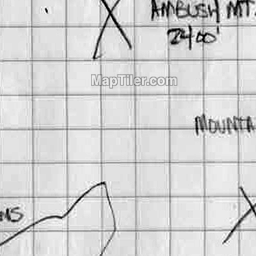 AMBUSH MT.
2400'
MapTiler.com
MOUNTA
NS